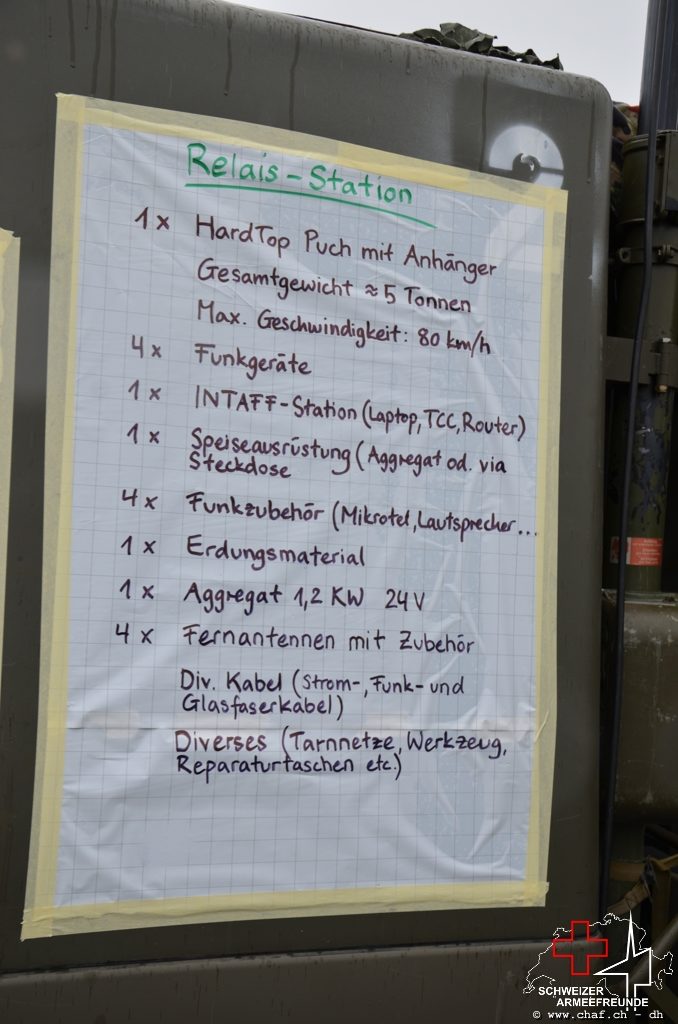 Relais-Station
1x HardTop Puch mit Anhänger
Gesamtgewicht ≈ 5 Tonnen
Max. Geschwindigkeit: 80 km/h
4x Funkgeräte
1x INTAFF-Station (Laptop, TCC, Router)
1x Speiseausrüstung (Aggregat od. via
Steckdose
4x Funkzubehör (Mikrotel, Lautsprecher...
1x Erdungsmaterial
1x Aggregat 1,2 KW 24V
4x Fernantennen mit Zubehör
Div. Kabel (Strom-, Funk- und
Glasfaserkabel)
Diverses (Tarnnetze, Werkzeug,
Reparaturtaschen etc.)
SCHWEIZER
ARMEEFREUNDE
© www.chaf.ch - dh